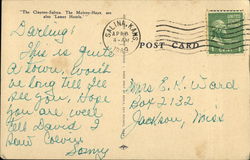 "The Clayton-Salina. The Malroy-Hays, are
also Lamer Hotels."
SALINA, KANS.
APR 8
POST CARD
Darling:
This is quite
a town, won't
be long till I'll
see you. Hope
you are well
tell David I
saw
Sammy
Mrs E. K. Ward
Box 2132
Jackson, Miss